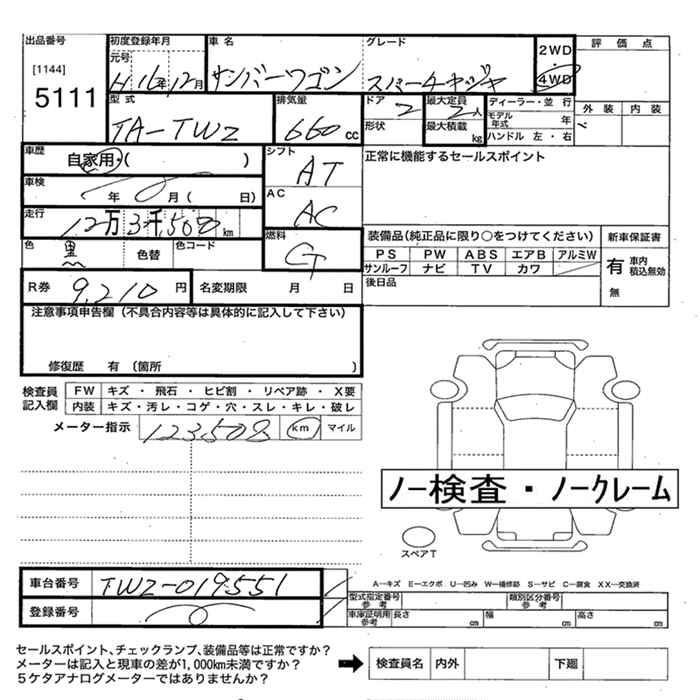 出品番号 初度登録年月 車名 グレード 2WD 評価点
[1144] 元号 4WD
5111 H16年12月 サンバーワゴン スバーチャジャ
型式 排気量 ドア 最大定員 ディーラー・並行 外装 内装
TA-TW2 660cc 2 2人 モデル年式 年
形状 最大積載 kg ハンドル 左・右
車歴 自家用・( ) シフト AT 正常に機能するセールスポイント
車検 年 月( 日) AC AC
走行 12万3千508km 燃料 装備品(純正品に限り○をつけてください) 新車保証書
色 黒 色替 色コード G PS PW ABS エアB アルミW 有 車内積込無効
サンルーフ ナビ TV カワ 無
R券 9,210円 名変期限 月 日 後日品
注意事項申告欄(不具合内容等は具体的に記入して下さい)
修復歴 有 (箇所 )
検査員記入欄 FW キズ ・ 飛石 ・ ヒビ割 ・ リペア跡 ・ X要
内装 キズ・汚レ・コゲ・穴・スレ・キレ・破レ
メーター指示 123,508 km マイル
ノー検査・ノークレーム
スペアT
車台番号 TW2-019551 A―キズ E―エクボ U―凹み W―補修跡 S―サビ C―腐食 XX―交換済
登録番号 型式指定番号 参考 類別区分番号 参考
車庫証明用 参考 長さ cm 幅 cm 高さ cm
セールスポイント、チェックランプ、装備品等は正常ですか?
メーターは記入と現車の差が1,000km未満ですか? ➡ 検査員名 内外 下廻
5ケタアナログメーターではありませんか?